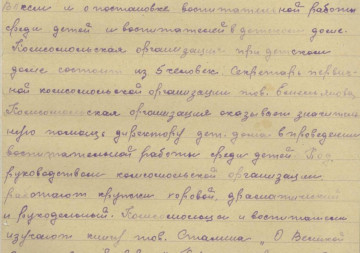 и о постановке воспитательной работы
среди детей и воспитателей в детском доме.
Комсомольская организация при детском
доме состоит из 5 человек. Секретарь первич-
ной комсомольской организации тов.
Комсомольская организация оказывает значитель-
ную помощь директору дет. дома в проведении
воспитательной работы среди детей. Под
руководством комсомольской организации
работают кружки хоровой, драматический
и рукодельный. Комсомольцы и воспитатели
изучают книгу тов. Сталина „О Великой